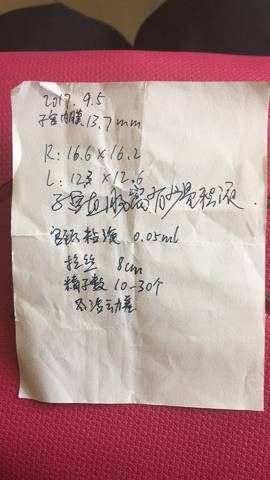 2017.9.5
子宫内膜13.7mm
R:16.6×16.2
L:123×12.6
子宫直肠窝有少量积液.
宫颈粘液 0.05ml
拉丝 8cm
精子数 10-30个
不活动差